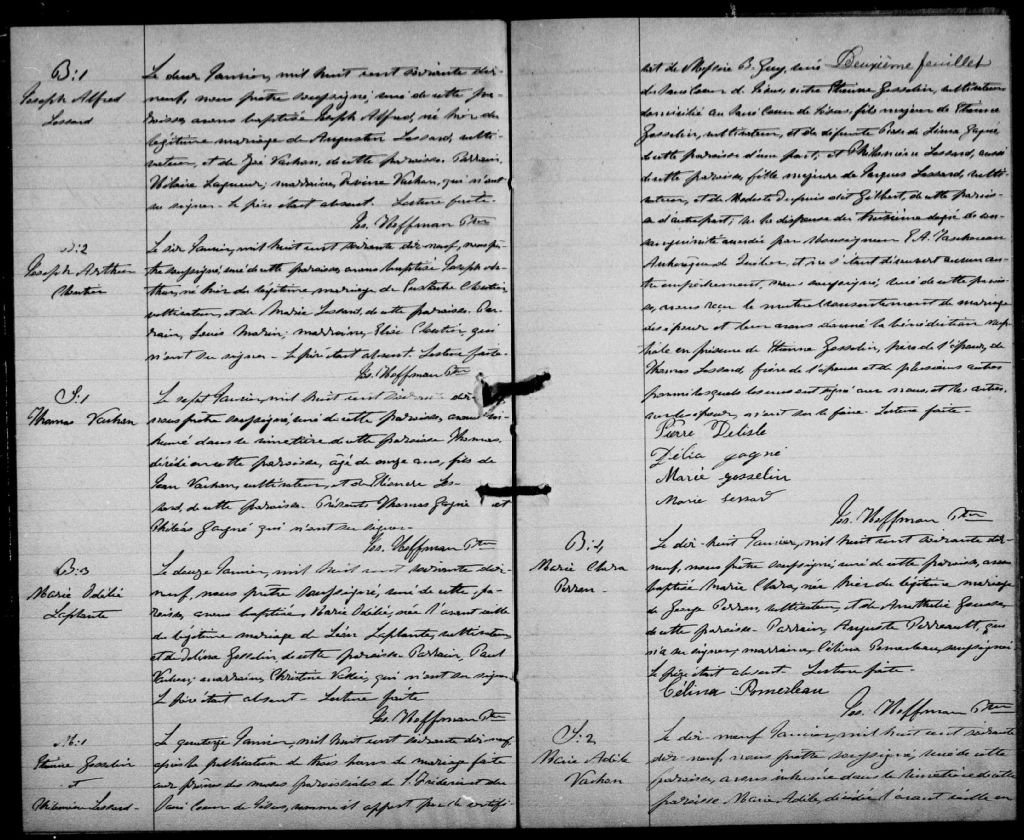 B:1
Joseph Alfred
Lessard
Le deux Janvier, mil huit cent soixante dix-
neuf, nous prêtre soussigné, curé de cette pa-
roisse, avons baptisé Joseph Alfred, né hier du
légitime mariage de Augustin Lessard, culti-
vateur, et de Zoé Vachon, de cette paroisse. Parrain,
marraine, Vachon, qui n'ont
su signer. Le père était absent. Lecture faite.
Jos. Hoffman Ptre
B:2
Joseph Arthur
Cloutier
Le dix Janvier, mil huit cent soixante dix-neuf, nous prê-
tre soussigné, curé de cette paroisse, avons baptisé Joseph Ar-
thur, né hier du légitime mariage de Eustache Cloutier,
cultivateur, et de Marie Lessard, de cette paroisse. Par-
rain, Louis ; marraine, Elise Cloutier, qui
n'ont su signer. Le père était absent. Lecture faite.
Jos. Hoffman Ptre
S:1
Thomas Vachon
Le sept Janvier, mil huit cent soixante dix-
nous prêtre soussigné, curé de cette paroisse, avons in-
humé dans le cimetière de cette paroisse Thomas,
décédé en cette paroisse, âgé de onze ans, fils de
Jean Vachon, cultivateur, et de Eléonore Les-
sard, de cette paroisse. Présents Thomas Gagné et
Philéas Gagné qui n'ont su signer.
Jos. Hoffman Ptre
B:3
Marie Odélie
Laplante
Le douze Janvier, mil huit cent soixante dix-
neuf, nous prêtre soussigné, curé de cette pa-
roisse, avons baptisé Marie Odélie, née l'avant veille
du légitime mariage de Léon Laplante, cultivateur,
et de Gosselin, de cette paroisse. Parrain, Paul
marraine, Christine qui n'ont su signer.
Le père était absent. Lecture faite.
Jos. Hoffman Ptre
M:1
Etienne Gosselin
et
Philomène Lessard
Le quatorze Janvier, mil huit cent soixante dix-neuf,
après la publication de trois bans de mariage faite
aux prônes des messes paroissiales de St Frédéric et du
Sacré Coeur de Jésus, comme il appert par le certifi-
Deuxième feuillet
cat de Messire B. Guy, curé
du Sacré Coeur de Jésus, entre Etienne Gosselin, cultivateur
domicilié au Sacré Coeur de Jésus, fils majeur de Etienne
Gosselin, cultivateur, et de défunte Rose de Lima Gagné
de cette paroisse d'une part; et Philomène Lessard, aussi
de cette paroisse, fille majeure de Jacques Lessard, culti-
vateur, et de Modeste Dupuis dit Gilbert, de cette parois-
se d'autre part; vu la dispense du troisième degré de con-
sanguinité accordée par Monseigneur E. A. Taschereau
Archevêque de Québec, et ne s'étant découvert aucun au-
tre empêchement, nous soussigné, curé de cette parois-
se, avons reçu le mutuel consentement de mariage
des époux et leur avons donné la bénédiction nup-
tiale en présence de Etienne Gosselin, père de l'époux, de
Thomas Lessard, frère de l'épouse et de plusieurs autres
parmi lesquels les uns ont signé avec nous, et les autres,
ainsi que les époux, n'ont su le faire. Lecture faite.
Pierre Delisle
Délia gagné
Marie gosselin
Marie lessard
Jos. Hoffman Ptre
B:4
Marie Clara
Perron
Le dix-huit Janvier, mil huit cent soixante dix-
neuf, nous prêtre soussigné, curé de cette paroisse, avons
baptisé Marie Clara, née hier du légitime mariage
de George Perron, cultivateur, et de
de cette paroisse. Parrain, Auguste Perreault, qui
n'a su signer; marraine, Célina Pomerleau, soussignée.
Le père était absent. Lecture faite.
Célina Pomerleau
Jos. Hoffman Ptre
S:2
Marie Adèle
Vachon
Le dix-neuf Janvier, mil huit cent soixante
dix-neuf, nous prêtre soussigné, curé de cette
paroisse, avons inhumé dans le cimetière de cette
paroisse Marie Adèle, décédée l'avant veille en